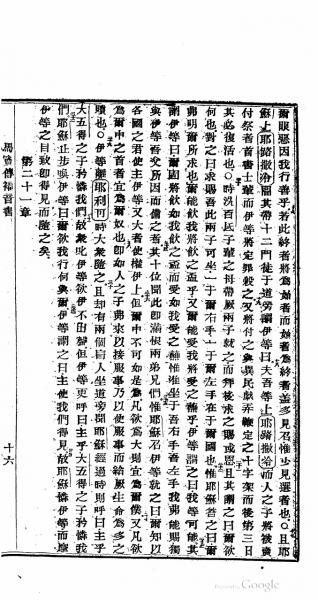 爾眼惡因我行善乎若此終者將為始者而始者為終者蓋多見召惟少見選者也○且耶
穌上耶路撒冷圖其帶十二門徒于道旁謂伊等曰夫吾等上耶路撒冷而人之子將被賣
付祭者首書士輩而伊等將定罪殺之又將付之與異民戲弄鞭定之十字架而後第三日
其必復活也○時洗百氐子輩之母帶厥兩子就之而拜後求之賜或恩且其謂之曰爾欲
何也對之曰求賜吾此兩子可坐一于爾右手一于爾左手在于爾國也惟耶穌答之曰爾
弗明爾所求也爾能飲我將飲之盃乎又爾能受我愛之蘸乎伊等謂之曰我等可能其
謂伊等曰爾固將飲如我飲之盃而受如我受之蘸惟坐于吾右手吾左手我弗能賜獨
與伊等吾父所因而備之者其十位聞此即滿恨兩弟兄們惟耶穌召伊等就之曰爾知以
各國之君使主伊等又大者使權伊上但爾中不可如是為凡欲為大則宜為爾僕又凡欲
為爾中之首者宜為爾奴也即如人之子弗來以接服事乃以使服事而給厥生命為多之
贖也○伊等離耶利可時大衆隨之且却有兩個盲人坐道旁聞耶穌經過時則呼曰主乎
大五得之子矜憐我們故衆叱伊等欲伊不出聲但伊等更呼曰主乎大五得之子矜憐我
們耶穌止步喚伊等曰爾欲我行何與爾伊等謂之曰主使我們得見故耶穌憐伊等而摩
伊等之目致即得見而隨之矣
第二十一章
馬竇傳福音書
十六
Google